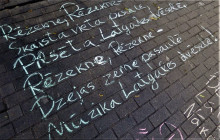 Rēzekne, Rēzekne
Skaista vieta pasaulē
Pilsēta Latgales dvēsele
Rēzekne, Rēzekne -
Dzejas zeme pasaulē
Mūzika Latgales dvēselē!